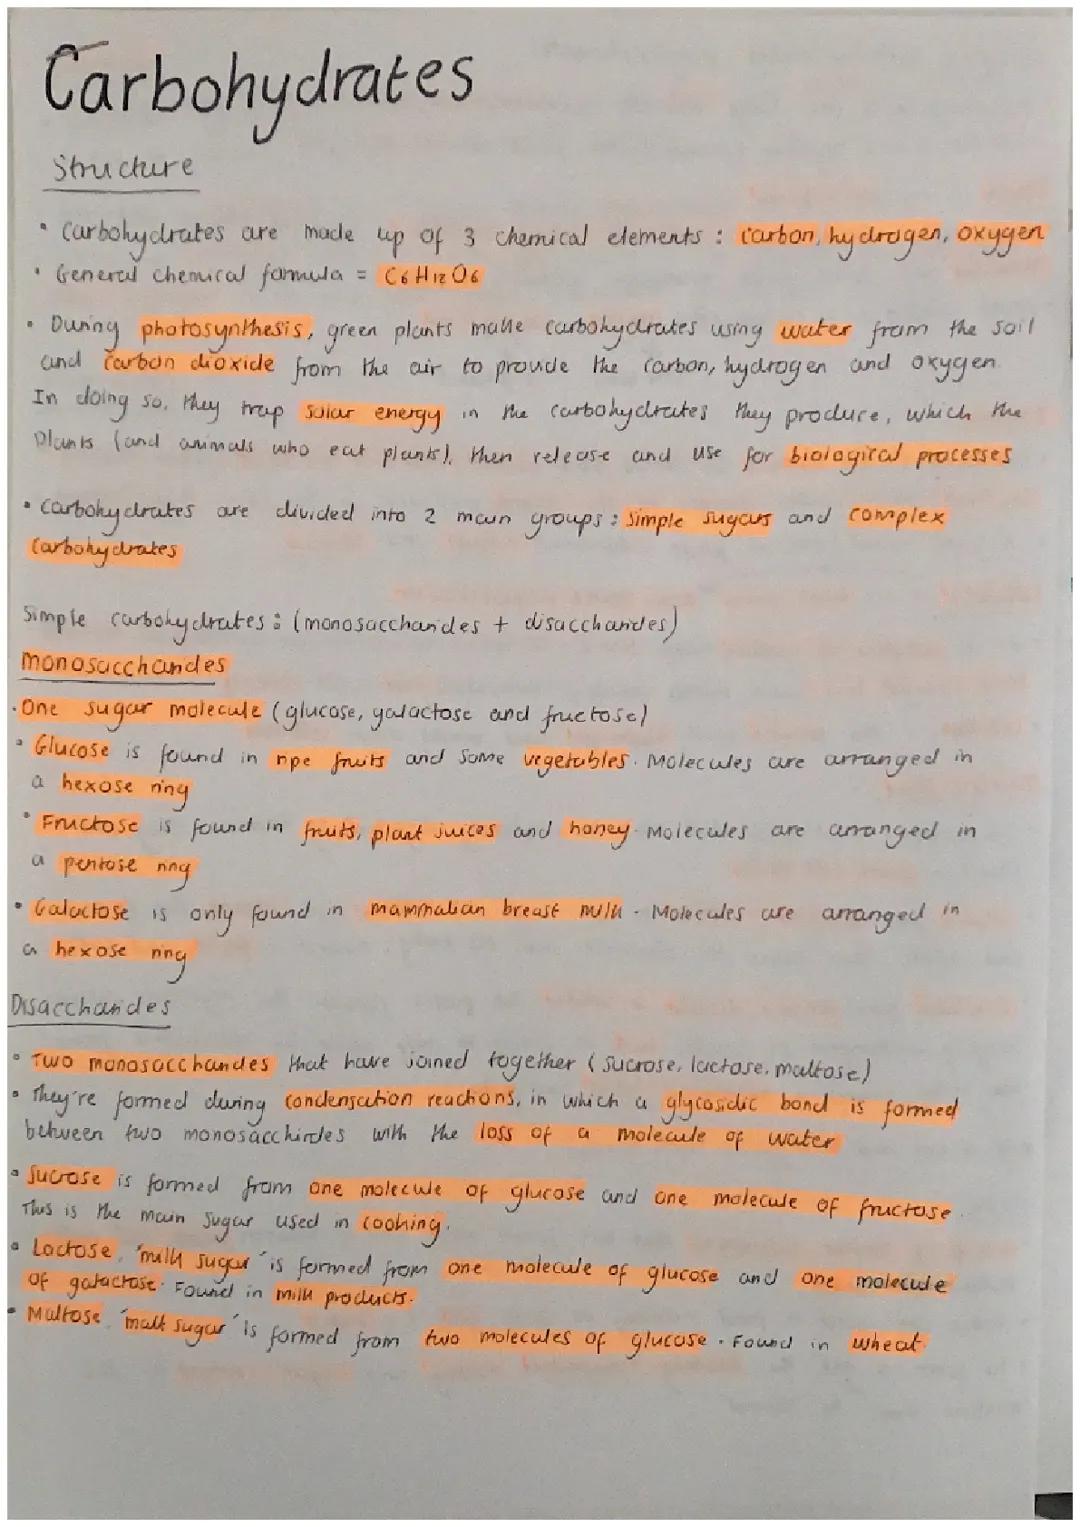 Carbohydrates
Structure
• Carbohydrates are made up of 3 chemical elements : carbon, hydrogen, oxygen
• General chemical formula = C6 H12 O6
• During photosynthesis, green plants make carbohydrates using water from the soil
and carbon dioxide from the air to provide the carbon, hydrogen and oxygen.
In doing so, they trap solar energy in the carbohydrates they produce, which the
plants (and animals who eat plants), then release and use for biological processes
• Carbohydrates are divided into 2 main groups : simple sugars and complex
carbohydrates
Simple carbohydrates : (monosaccharides + disaccharides)
Monosaccharides
• One sugar molecule (glucose, galactose and fructose)
• Glucose is found in ripe fruits and some vegetables. Molecules are arranged in
a hexose ring
• Fructose is found in fruits, plant juices and honey. Molecules are arranged in
a pentose ring
• Galactose is only found in mammalian breast milk. Molecules are arranged in
a hexose ring
Disaccharides
• Two monosaccharides that have joined together (sucrose, lactose, maltose)
• They're formed during condensation reactions, in which a glycosidic bond is formed
between two monosacchirdes with the loss of a molecule of water
• Sucrose is formed from one molecule of glucose and one molecule of fructose.
This is the main sugar used in cooking.
• Lactose, 'milk sugar' is formed from one molecule of glucose and one molecule
of galactose. Found in milk products.
• Maltose, 'malt sugar' is formed from two molecules of glucose. Found in wheat.